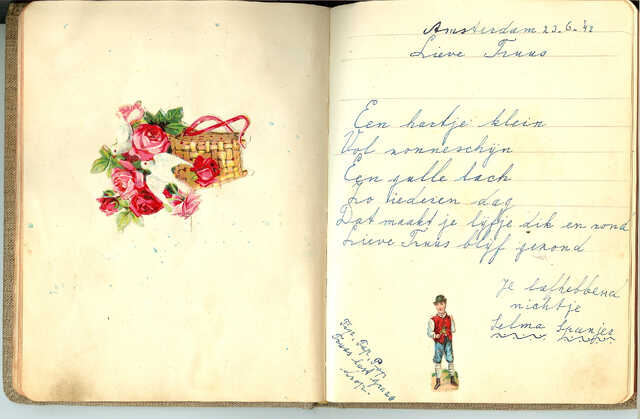 Amsterdam 23-6-'42
Lieve Truus
Een hartje klein
Vol zonneschijn
Een gulle lach
Zo iederen dag
Dat maakt je lijfje dik en rond
Lieve Truus blijf gezond
Je liefhebbend
nichtje
Selma Spanjer
Tip, Tip, Top,
Truus lust graag
drop.